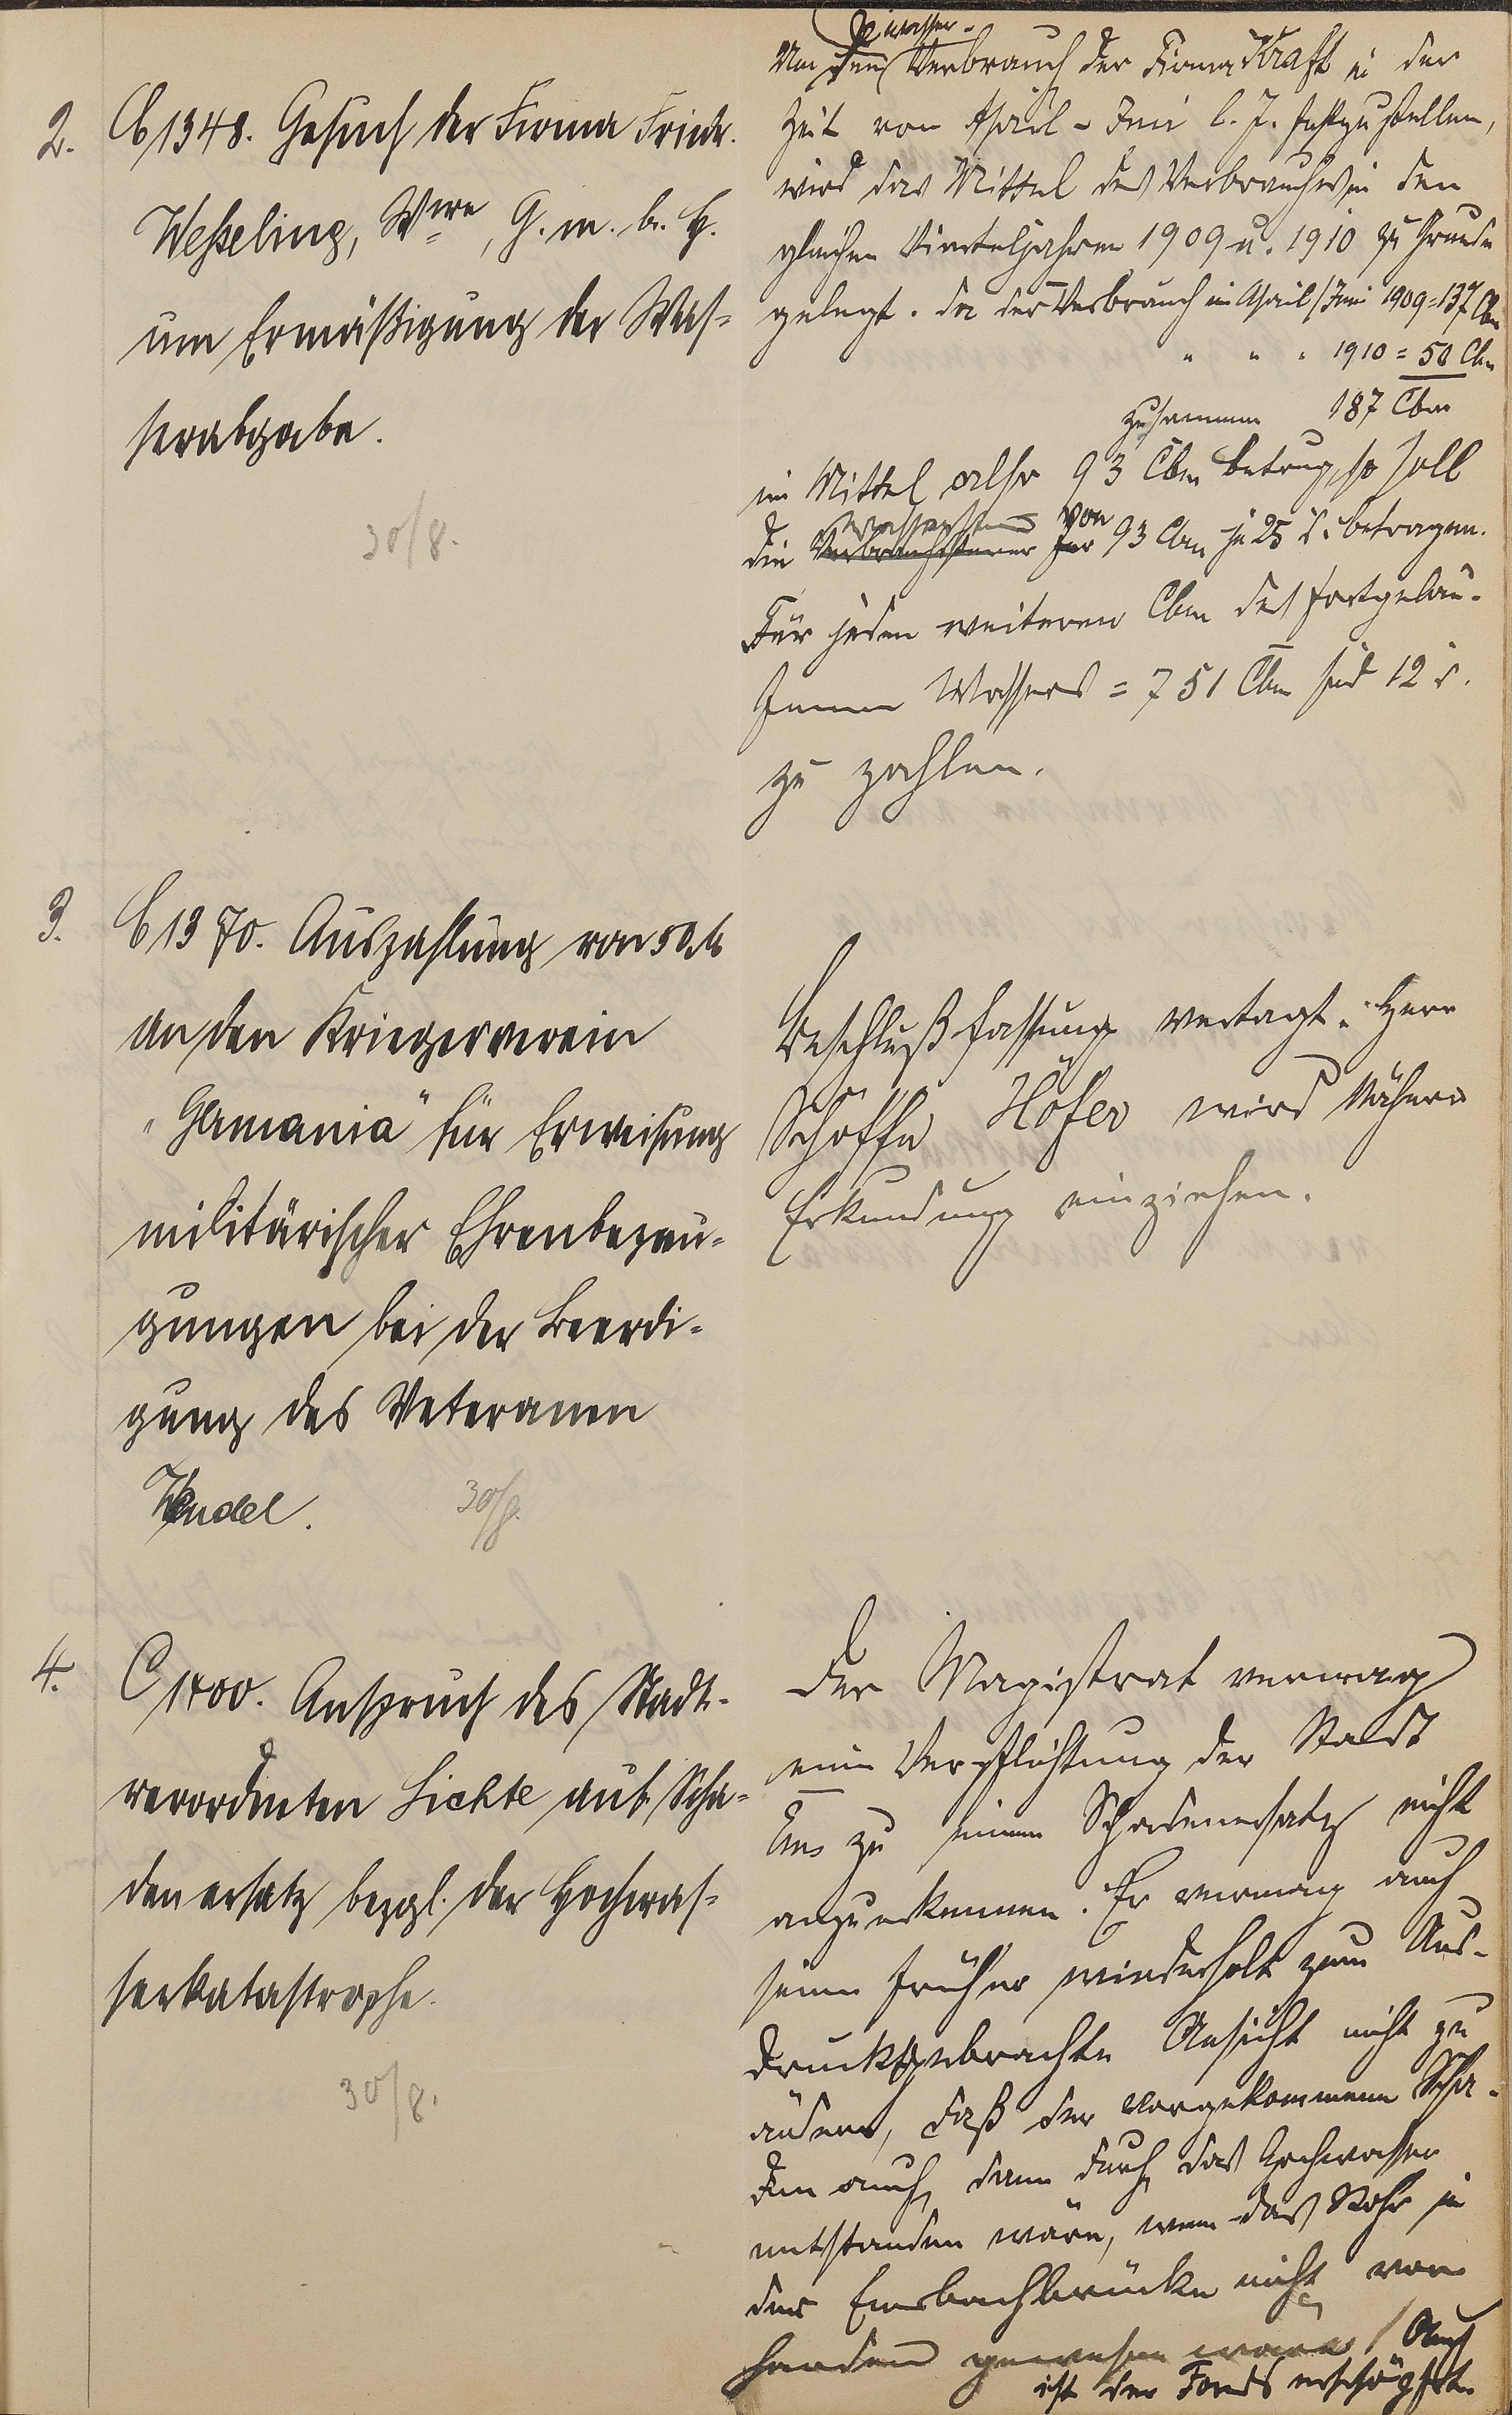 2. C 1348. Gesuch der Firma Friedr.
Weßeling, Wwe, G. m. b. H.
um Ermäßigung der Was-
serabgabe.
30/8.
wasser-
Um den Verbrauch der Firma Kraft in der
Zeit von April - Juni l. J. festzustellen,
wird das Mittel des Verbrauches in den
gleichen Vierteljahren 1909 u. 1910 zu Grunde
gelegt. Da der Verbrauch im April/Juni 1909 = 137 Cbm
" " " 1910 = 50 Cbm
zusammen 187 Cbm
im Mittel also 93 Cbm betrug, so soll
von
die Verbrauchsteuer für 93 Cbm je 25 d. betragen.
Für jeden weiteren Cbm des fortgelau-
fenen Wassers = 751 Cbm sind 12 d.
zu zahlen.
3. C 1370. Auszahlung von 50 M
an den Kriegerverein
"Germania" für Erweisung
militärischer Ehrenbezeu-
gungen bei der Beerdi-
gung des Veteranen
Wendel.
30/8.
Beschlußfassung vertagt. Herr
Schöffe Höfer wird nähere
Erkundung einziehen.
4. C 1400. Anspruch des Stadt-
verordneten Lichte auf Scha-
denersatz bezgl. der Hochwas-
serkatastrophe.
30/8.
Der Magistrat vermag
eine Verpflichtung der Stadt
zu einem Schadenersatz nicht
anzuerkennen. Er vermag auch
seine früher wiederholt zum Aus-
druck gebrachte Ansicht nicht zu
ändern, daß der vorgekommene Scha-
den auch dann durch das Hochwasser
entstanden wäre, wenn das Rohr in
der Emsbachbrücke nicht vor-
handen gewesen wäre / Auch
ist der Fonds erschöpft.